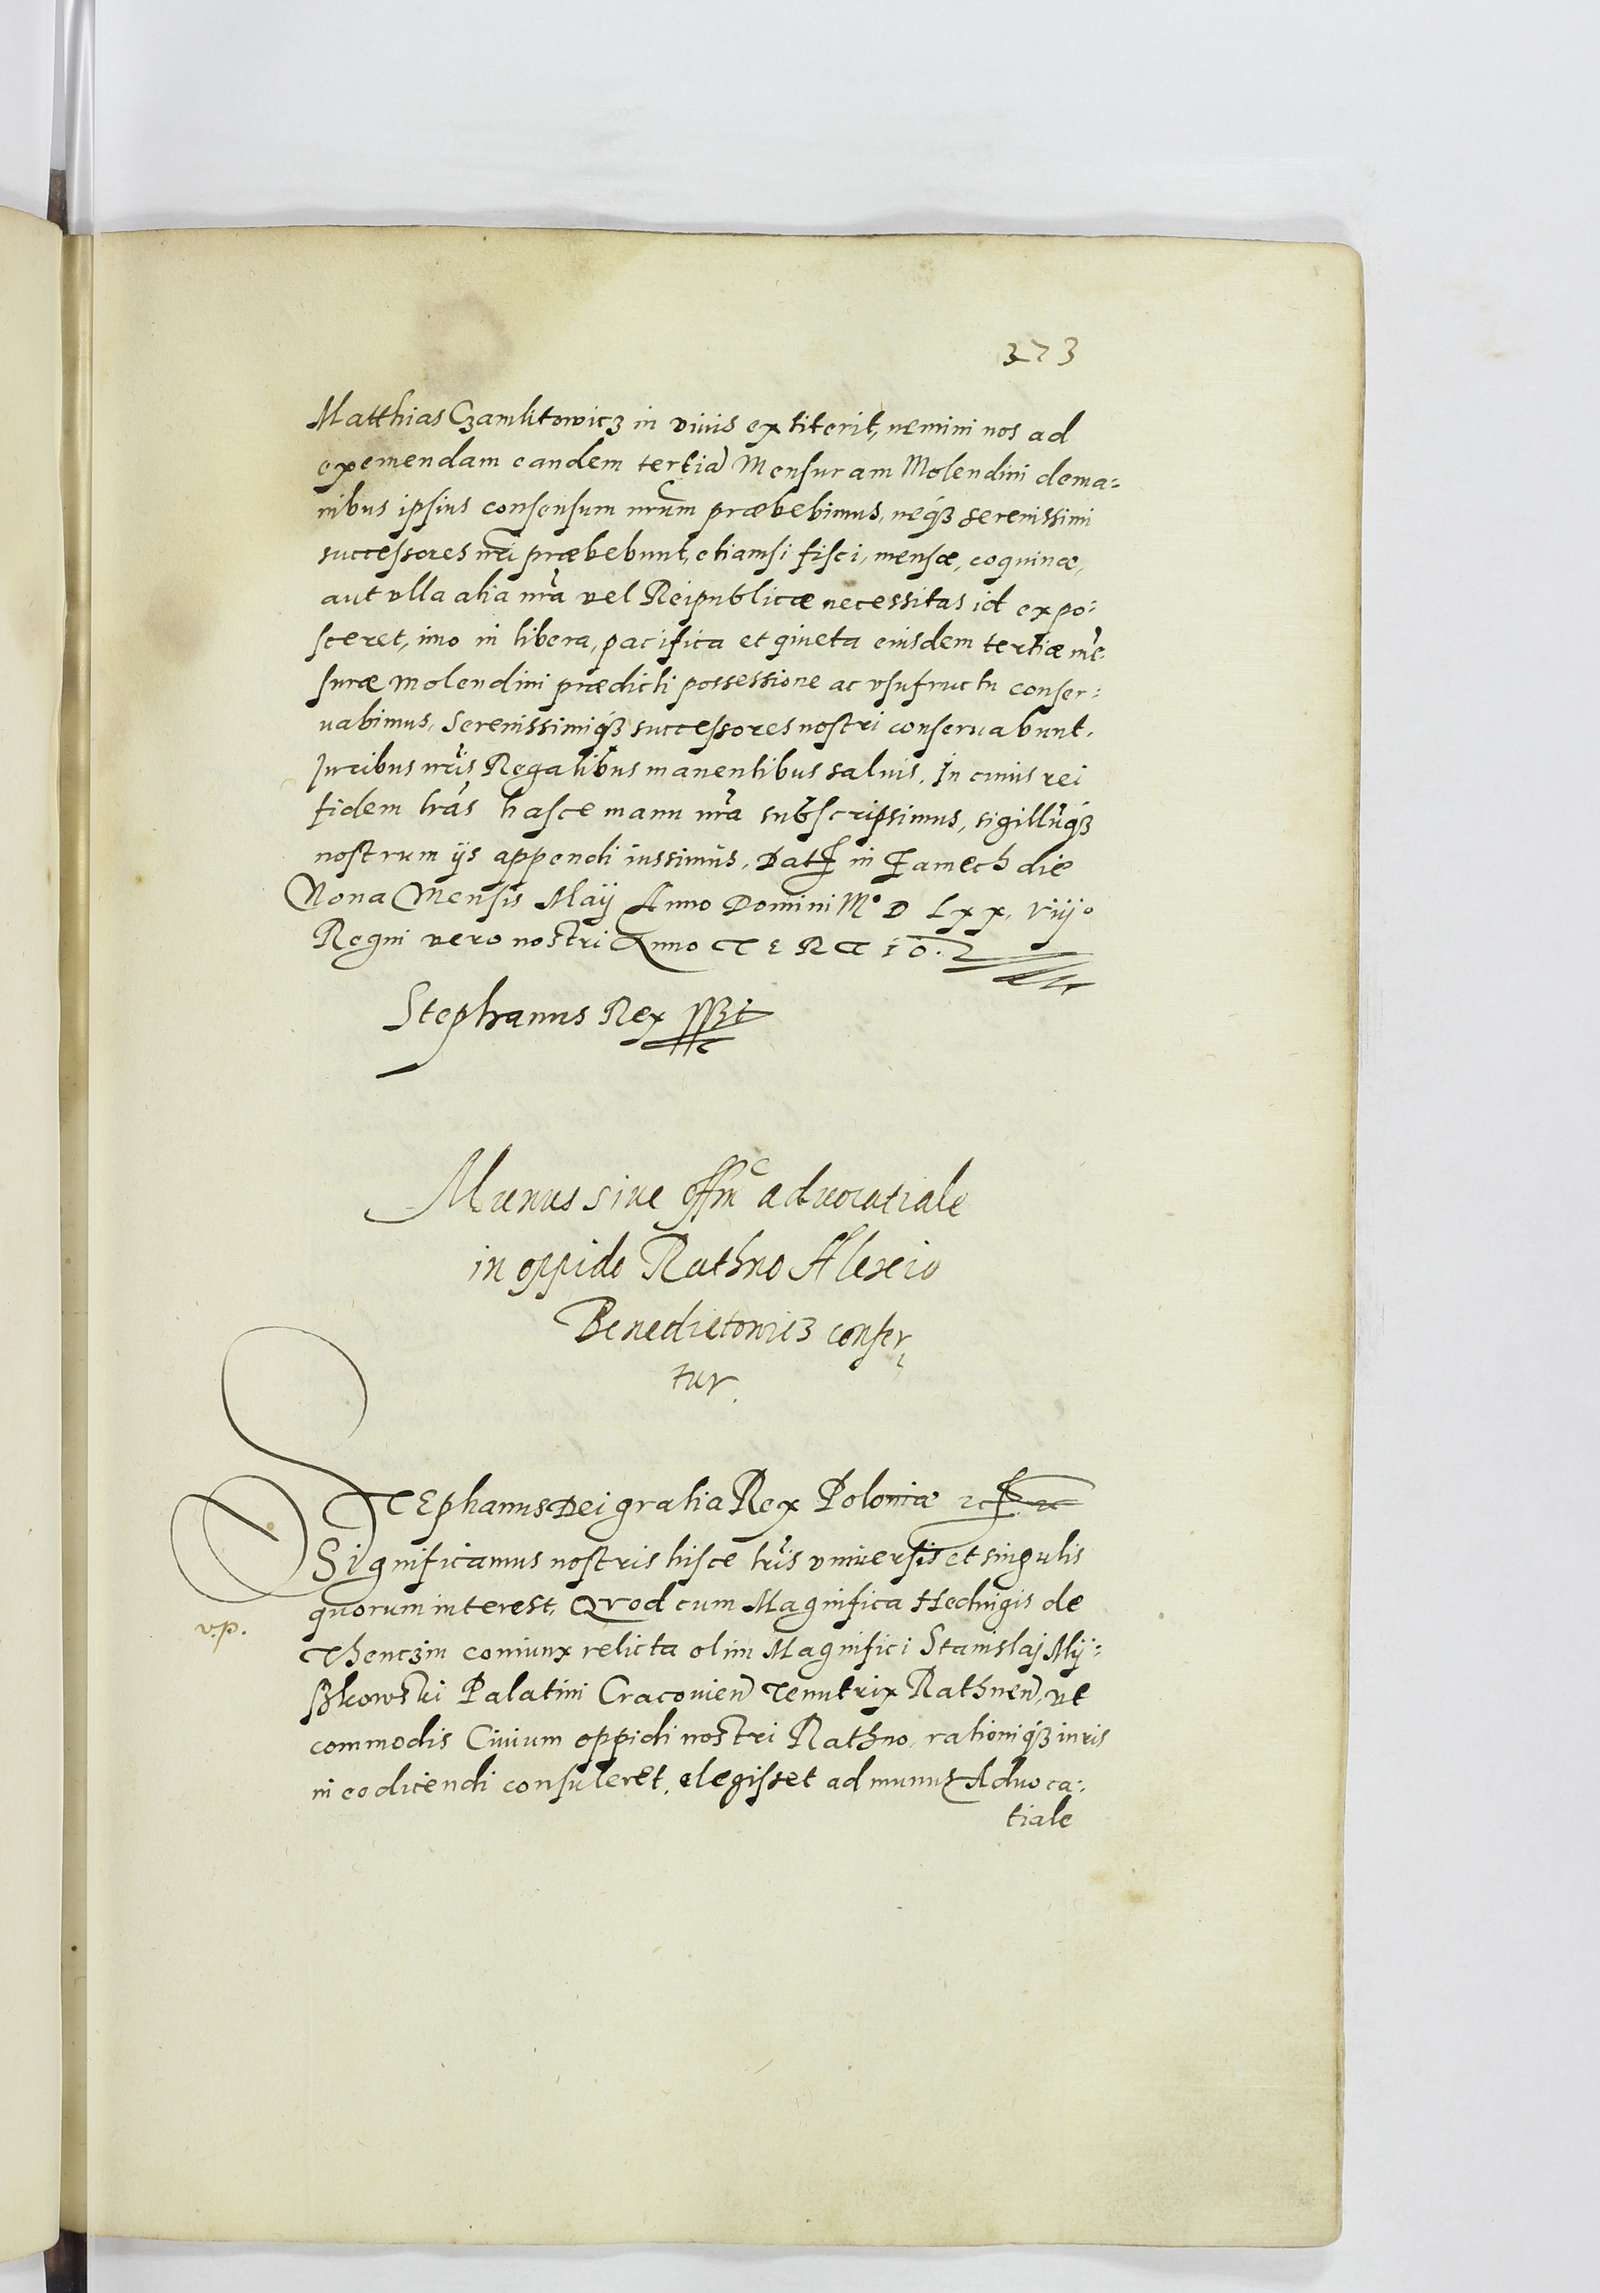 373
Matthias Czamlitowicz in viuis extiterit, nemini nos ad
exemendam eandem tertiã Mensuram Molendini de ma=
nibus ipsius consensum nrum præbebimus, neq3 serenissimi
successores nri præbebunt, etiamsi fisci, mensæ, coquinæ,
aut vlla alia nra vel Reipublicæ necessitas id expo=
sceret, imo in libera, pacifica et quieta eiusdem tertiæ me=
suræ Molendini prædicti possessione ac vsufructu conser=
uabimus, Serenissimiq3 successores nostri conseruabunt.
Juribus nris Regalibus manentibus saluis. In cuius rei
fidem lras hasce manu nra subscripsimus, sigillũq3
nostrum ijs appendi iussimus. Dat in Camech die
Nona Mensis Maij Anno Domini Mº D Lxx. viijº
Regni vero nostri Anno TERTIO.
Stephanus Rex sst
Munus siue offm aduocatiale
in oppido Rathno Alexio
Benedictowicz confer
tur.
STEphanus Dei gratia Rex Poloniæ etc
Significamus nostris hisce lris vniuersis et singulis
quorum interest, Quod cum Magnifica Heduigis de
v.p.
Thenczin coniunx relicta olim Magnifici Stanislaj Mij=
szkowski Palatini Cracouieñ Tenutrix Rathneñ, vt
commodis Ciuium oppidi nostri Rathno, rationiq3 iuris
in eo dicendi consuleret, elegisset ad munus Aduoca=
tiale